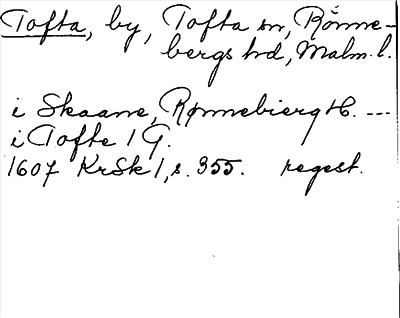 Tofta, by, Tofta sn, Rönne-
bergs hd, Malm. l.
i Skaane, Rønnebierg H. ---
i Tofte 1 G.
1607 KrSk 1, s. 355. regest.